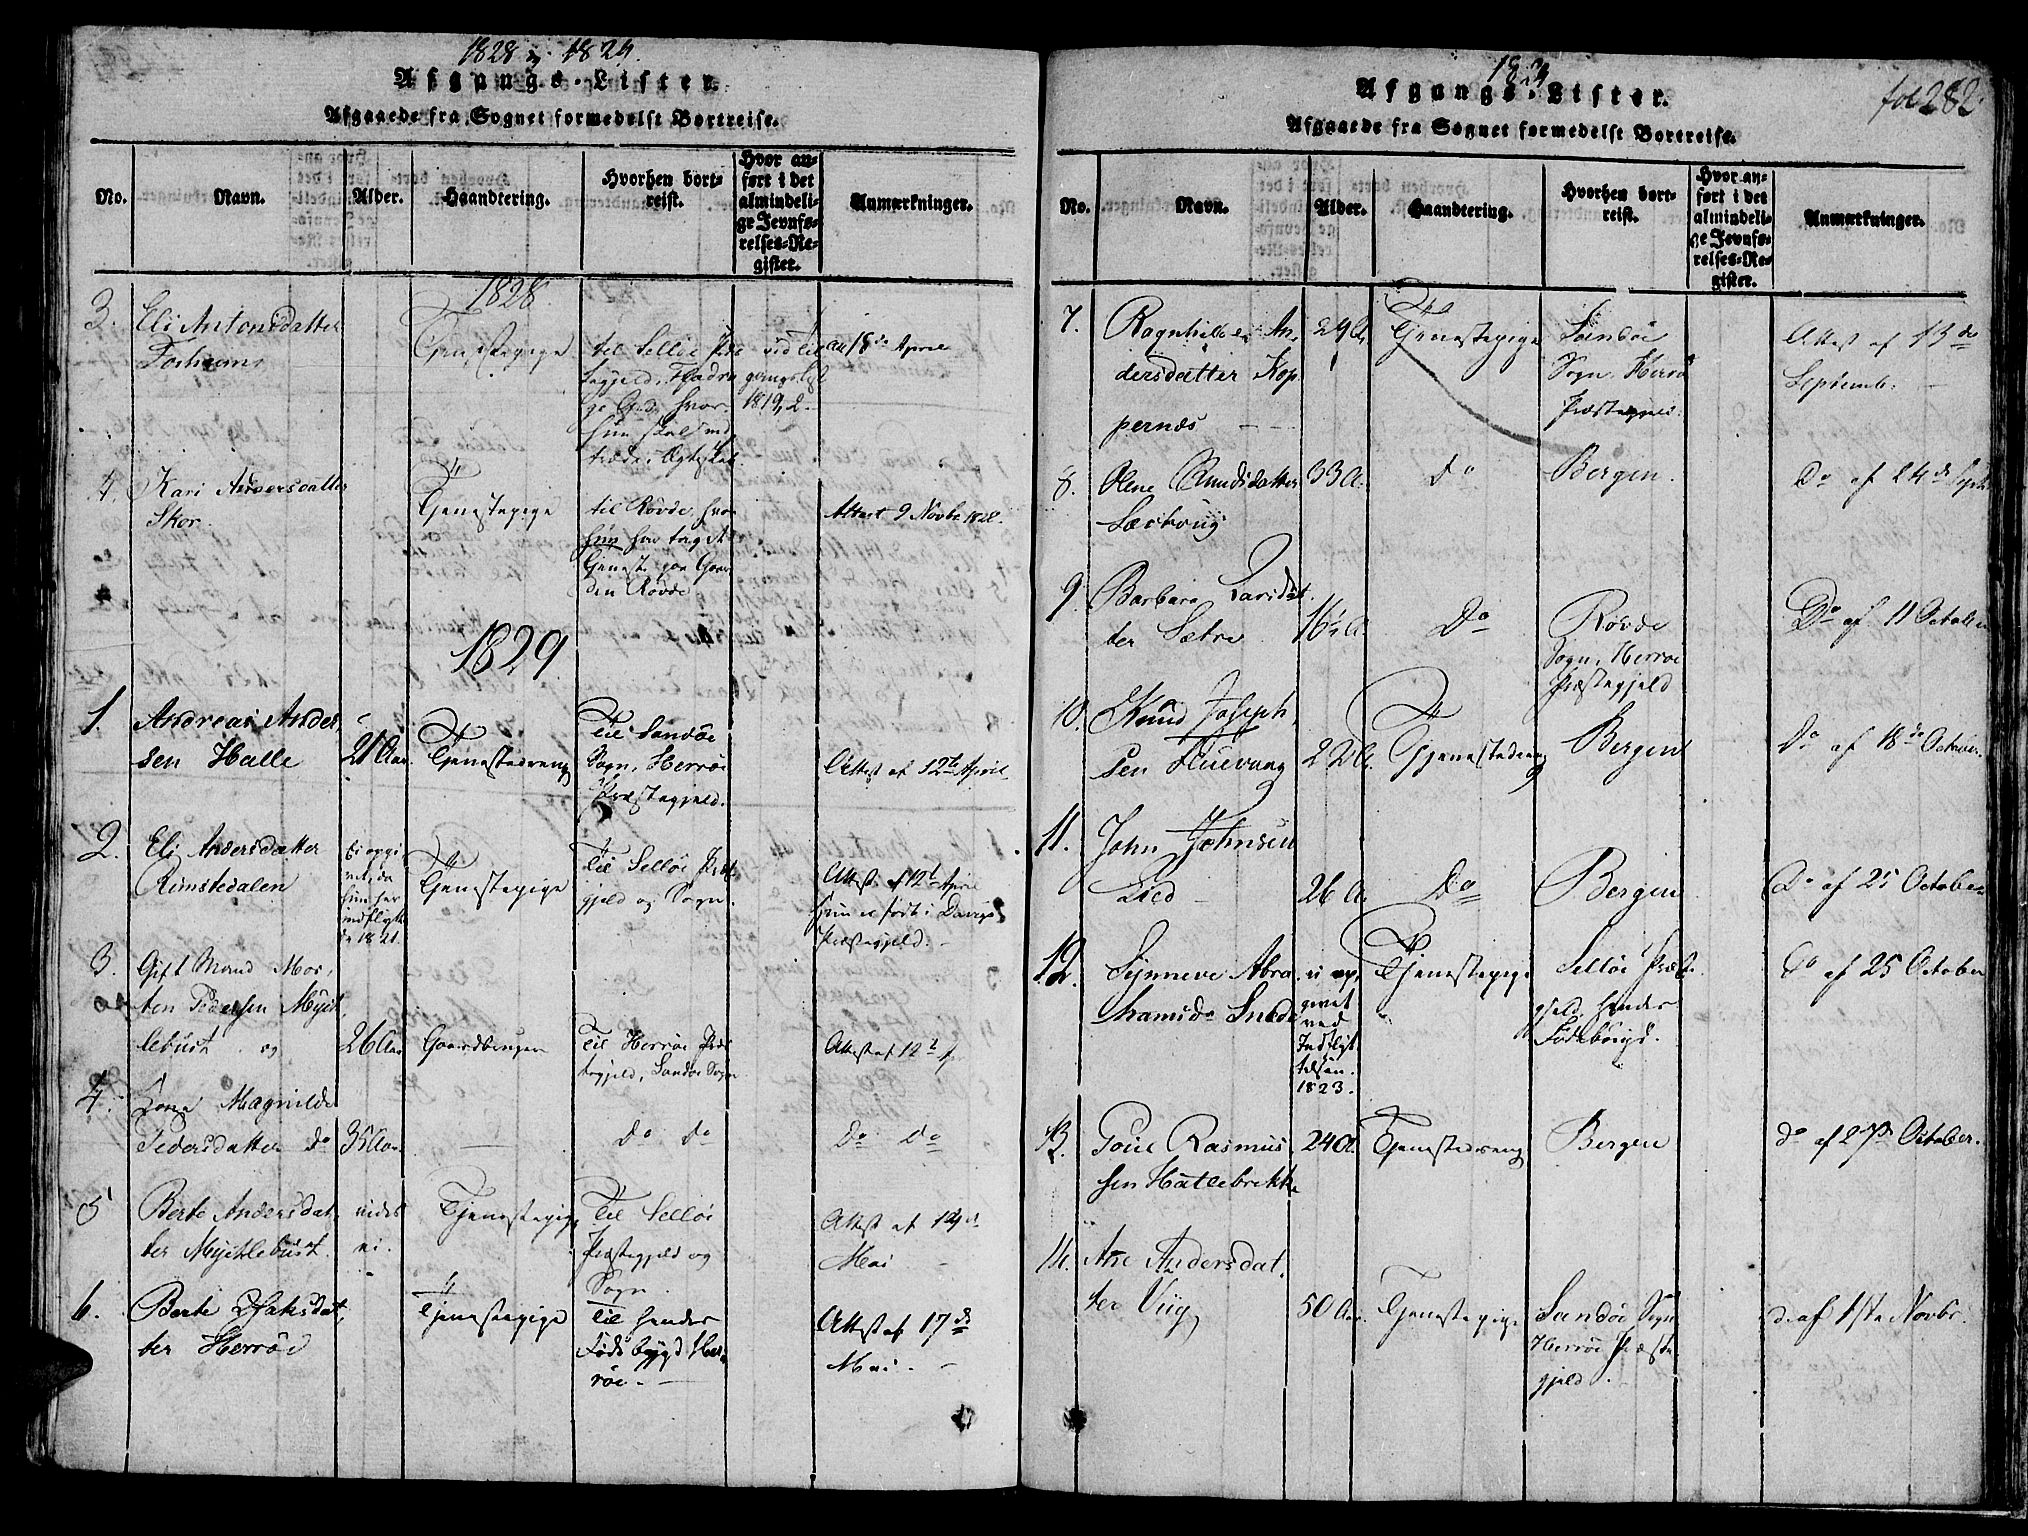 1828 og 1829.
Afgangs-Lister.
Afgaaede fra Sognet formedelst Bortreise.
No.
Navn.
Alder.
Haandtering.
Hvorhen bort-
reist.
Hvor an-
ført i det
almindeli-
ge Jevnfø-
relses-Re-
gister.
Anmærkninger.
1828.
3. Eli Antonsdatter
Tjenestepige
til Selløe
vid Til
18de April
gangslist
1819,2.
hvor
hun skal ind
træde i Ægtestand
4. Kari Andersdatter
Skor.
Tjenestepige
til Røvde, hvor
hun har taget
Tjeneste paa Gaar
den Røvde
Attest 9 Novbr 1828.
1829
1. Andreas Ander
sen Halle
21 Aar.
Tjenestedreng
Til Sandøe
Sogn, Herrøe
Præstegjeld.
Attest af 12te April
2. Eli Andersdatter
Rimstedalen
Ei opgi
vet, da
hun her
indflytte
de 1821.
Tjenestepige
Til Selløe Præste
gjeld og Sogn.
Attest af 12te April
hun er født i Davigs
Præstegjeld.
3. Gift Mand Mor
ten Pedersen Mykle
lebust og
26 Aar
Gaardbruger
Til Herrøe Præs
tegjeld, Sandøe Sogn
Attest af 12te
4. Kone Magnilde
Pedersdatter do
35 Aar.
Do Do
Do Do
5 Berte Andersdat
ter Myklebust.
Tjenestepige
Til Selløe
Præstegjeld og
Sogn.
Attest af 14de
Mai
6. Berte
ter Herrøe
Tjenestepige
Til hendes
Føde bygd Her
røe.
Attest af 17de
Mai.
1829
Afgangs-Lister.
fol 282.
Afgaaede fra Sognet formedelst Bortreise.
No.
Navn.
Alder.
Haandtering.
Hvorhen bort-
reist.
Hvor an-
ført i det
almindeli-
ge Jevnfø-
relses-Re-
gister.
Anmærkninger.
7. Ragnhilde An
dersdatter Kop
pernæs
29 A.
Tjenestepige
Sandøe
Sogn, Herrøe
Præstegjeld.
Attest af 13de
Septemb.
8. Olene Knudsdatter
33 A.
Do
Bergen.
Do af 24de Septbr
9. Barbara Larsdat
ter Sætre
16½ A.
Do
Røvde
Sogn, Herrøe
Præstegjeld
Do af 11 October
10. Knud Joseph
sen
22 A.
Tjenestedreng
Bergen
Do af 18de October.
11. John Johnsen
Lied
26 A.
Do
Bergen
Do af 25 October
12. Synneve Abra
hamsdr
ei op
givet
ved
Indflyt
telsen.
1823.
Tjenestepige
Selløe Præste
gjeld, hendes
Fødebøigd.
Do af 25 October
13. Rasmus
sen Hatlebrekke
24 A.
Tjenestedreng
Bergen
do af 27de October.
14. Ane Andersdat
ter Viig
50 Aar.
Tjenestepige
Sandøe Sogn
Herrøe Præste
gjeld.
do af 1ste Novbr.